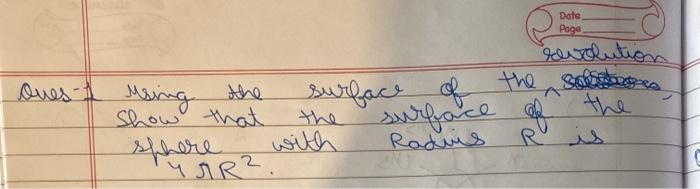 Date
Page
revolution
Ques-1 Using the surface of the ^
Show that the surface of the
sphere with Radius R is
4πR².